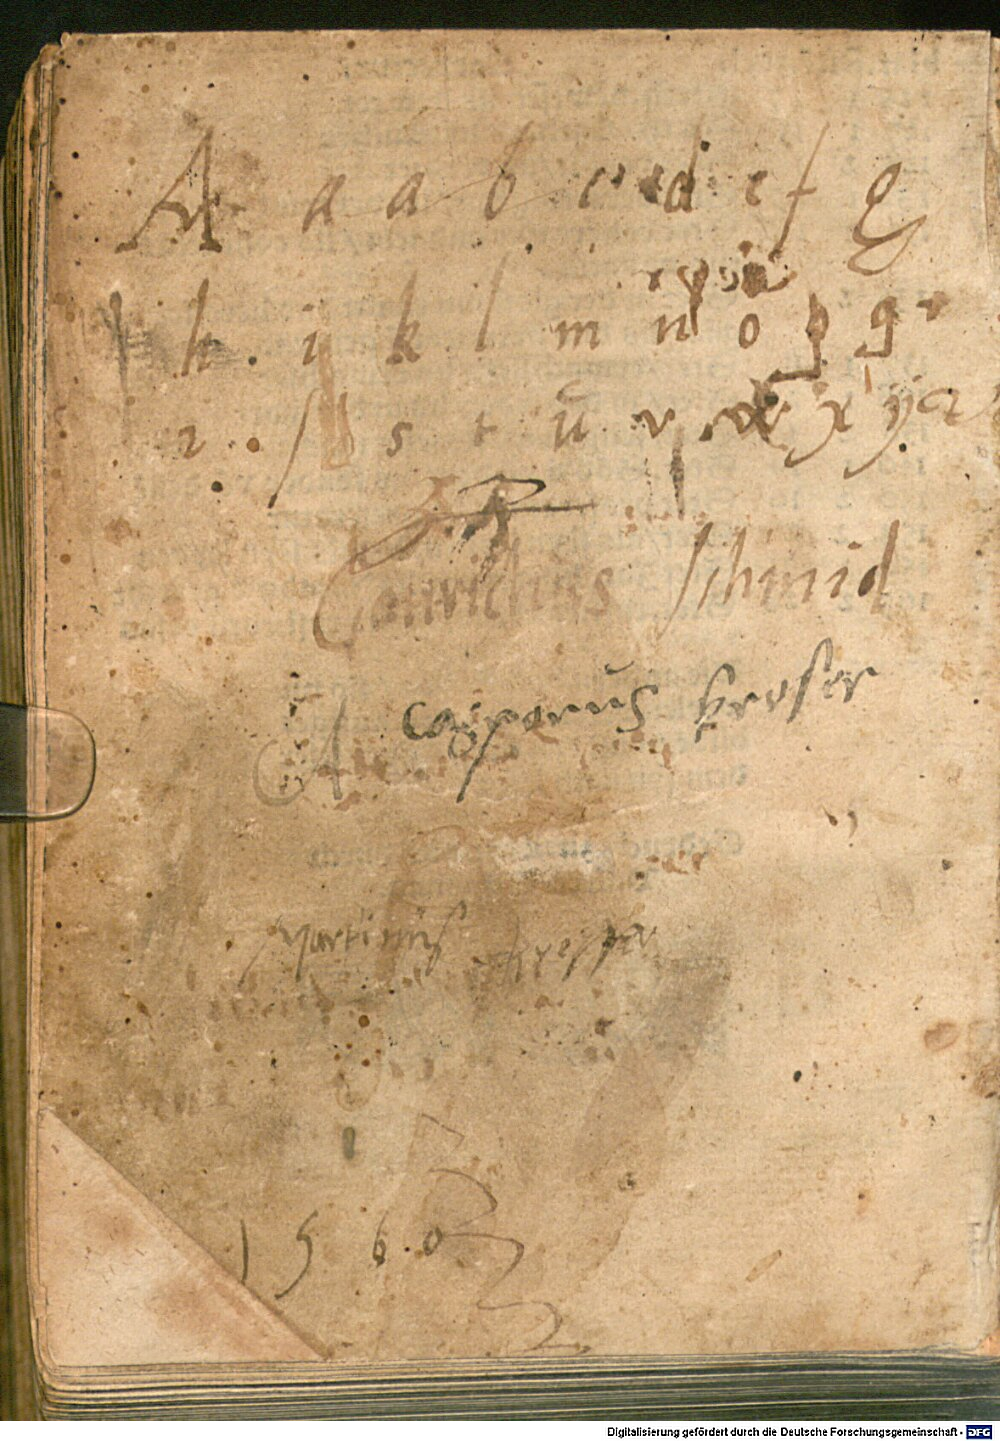 A a a b c d e f g
h i k l m n o p q
r ſ s t u v w x ÿ z
Conradus Schmid
casparus kreser
Martinus kreser
1560
Digitalisierung gefördert durch die Deutsche Forschungsgemeinschaft - DFG